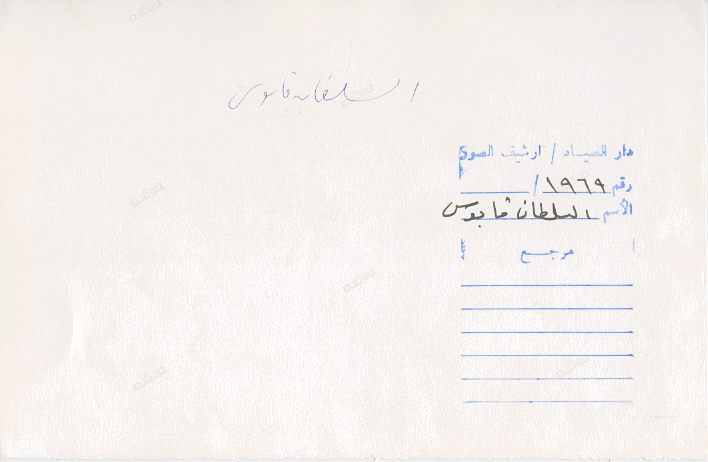 السلطان قابوس
دار الصياد / ارشيف الصور
رقم ١٩٦٩ /
الأسم السلطان قابوس
مرجع